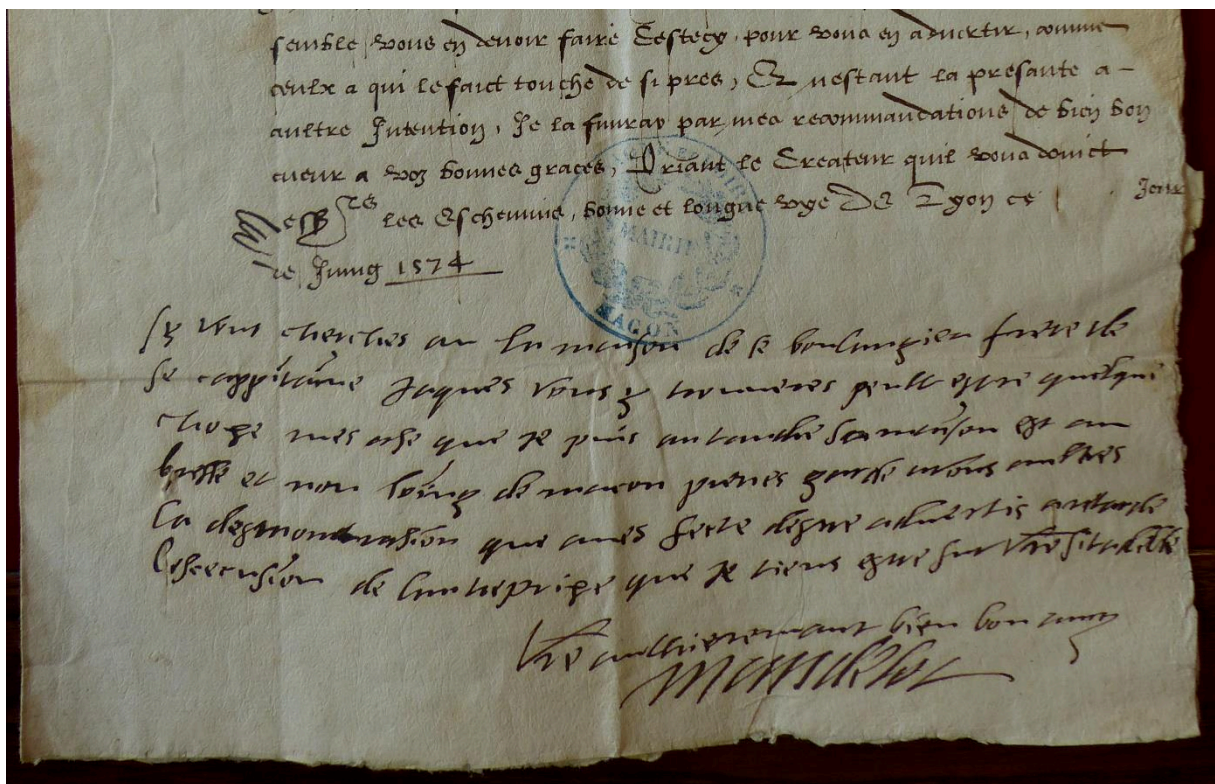 semble vous en devoir faire ceste cy, pour vous en advertir, comme
ceulx a qui le faict touche de si pres, Et nestant la presante a
aultre Intention, Je la finiray par mes recommandations de bien bon
cueur a voz bonnes graces, Priant le Createur quil vous doinct
Messrs les Eschevins, bonne et longue vye De Lyon ce Jour
de Juing 1574
MAIRIE
MACON
sy vous cherches an la maison de se boulangier frere de
se cappitaine Jaques vous y trouveres peult estre quelque
chose que je puis antandre sa maison est an
bresse et non loing de macon prenes garde a vous aultres
la desmontrasion que aves fecte destre advertis retarde
lesecusion de lantreprise que je tiens estre sur vre
Vre antieremant bien bon amy
Mandelot